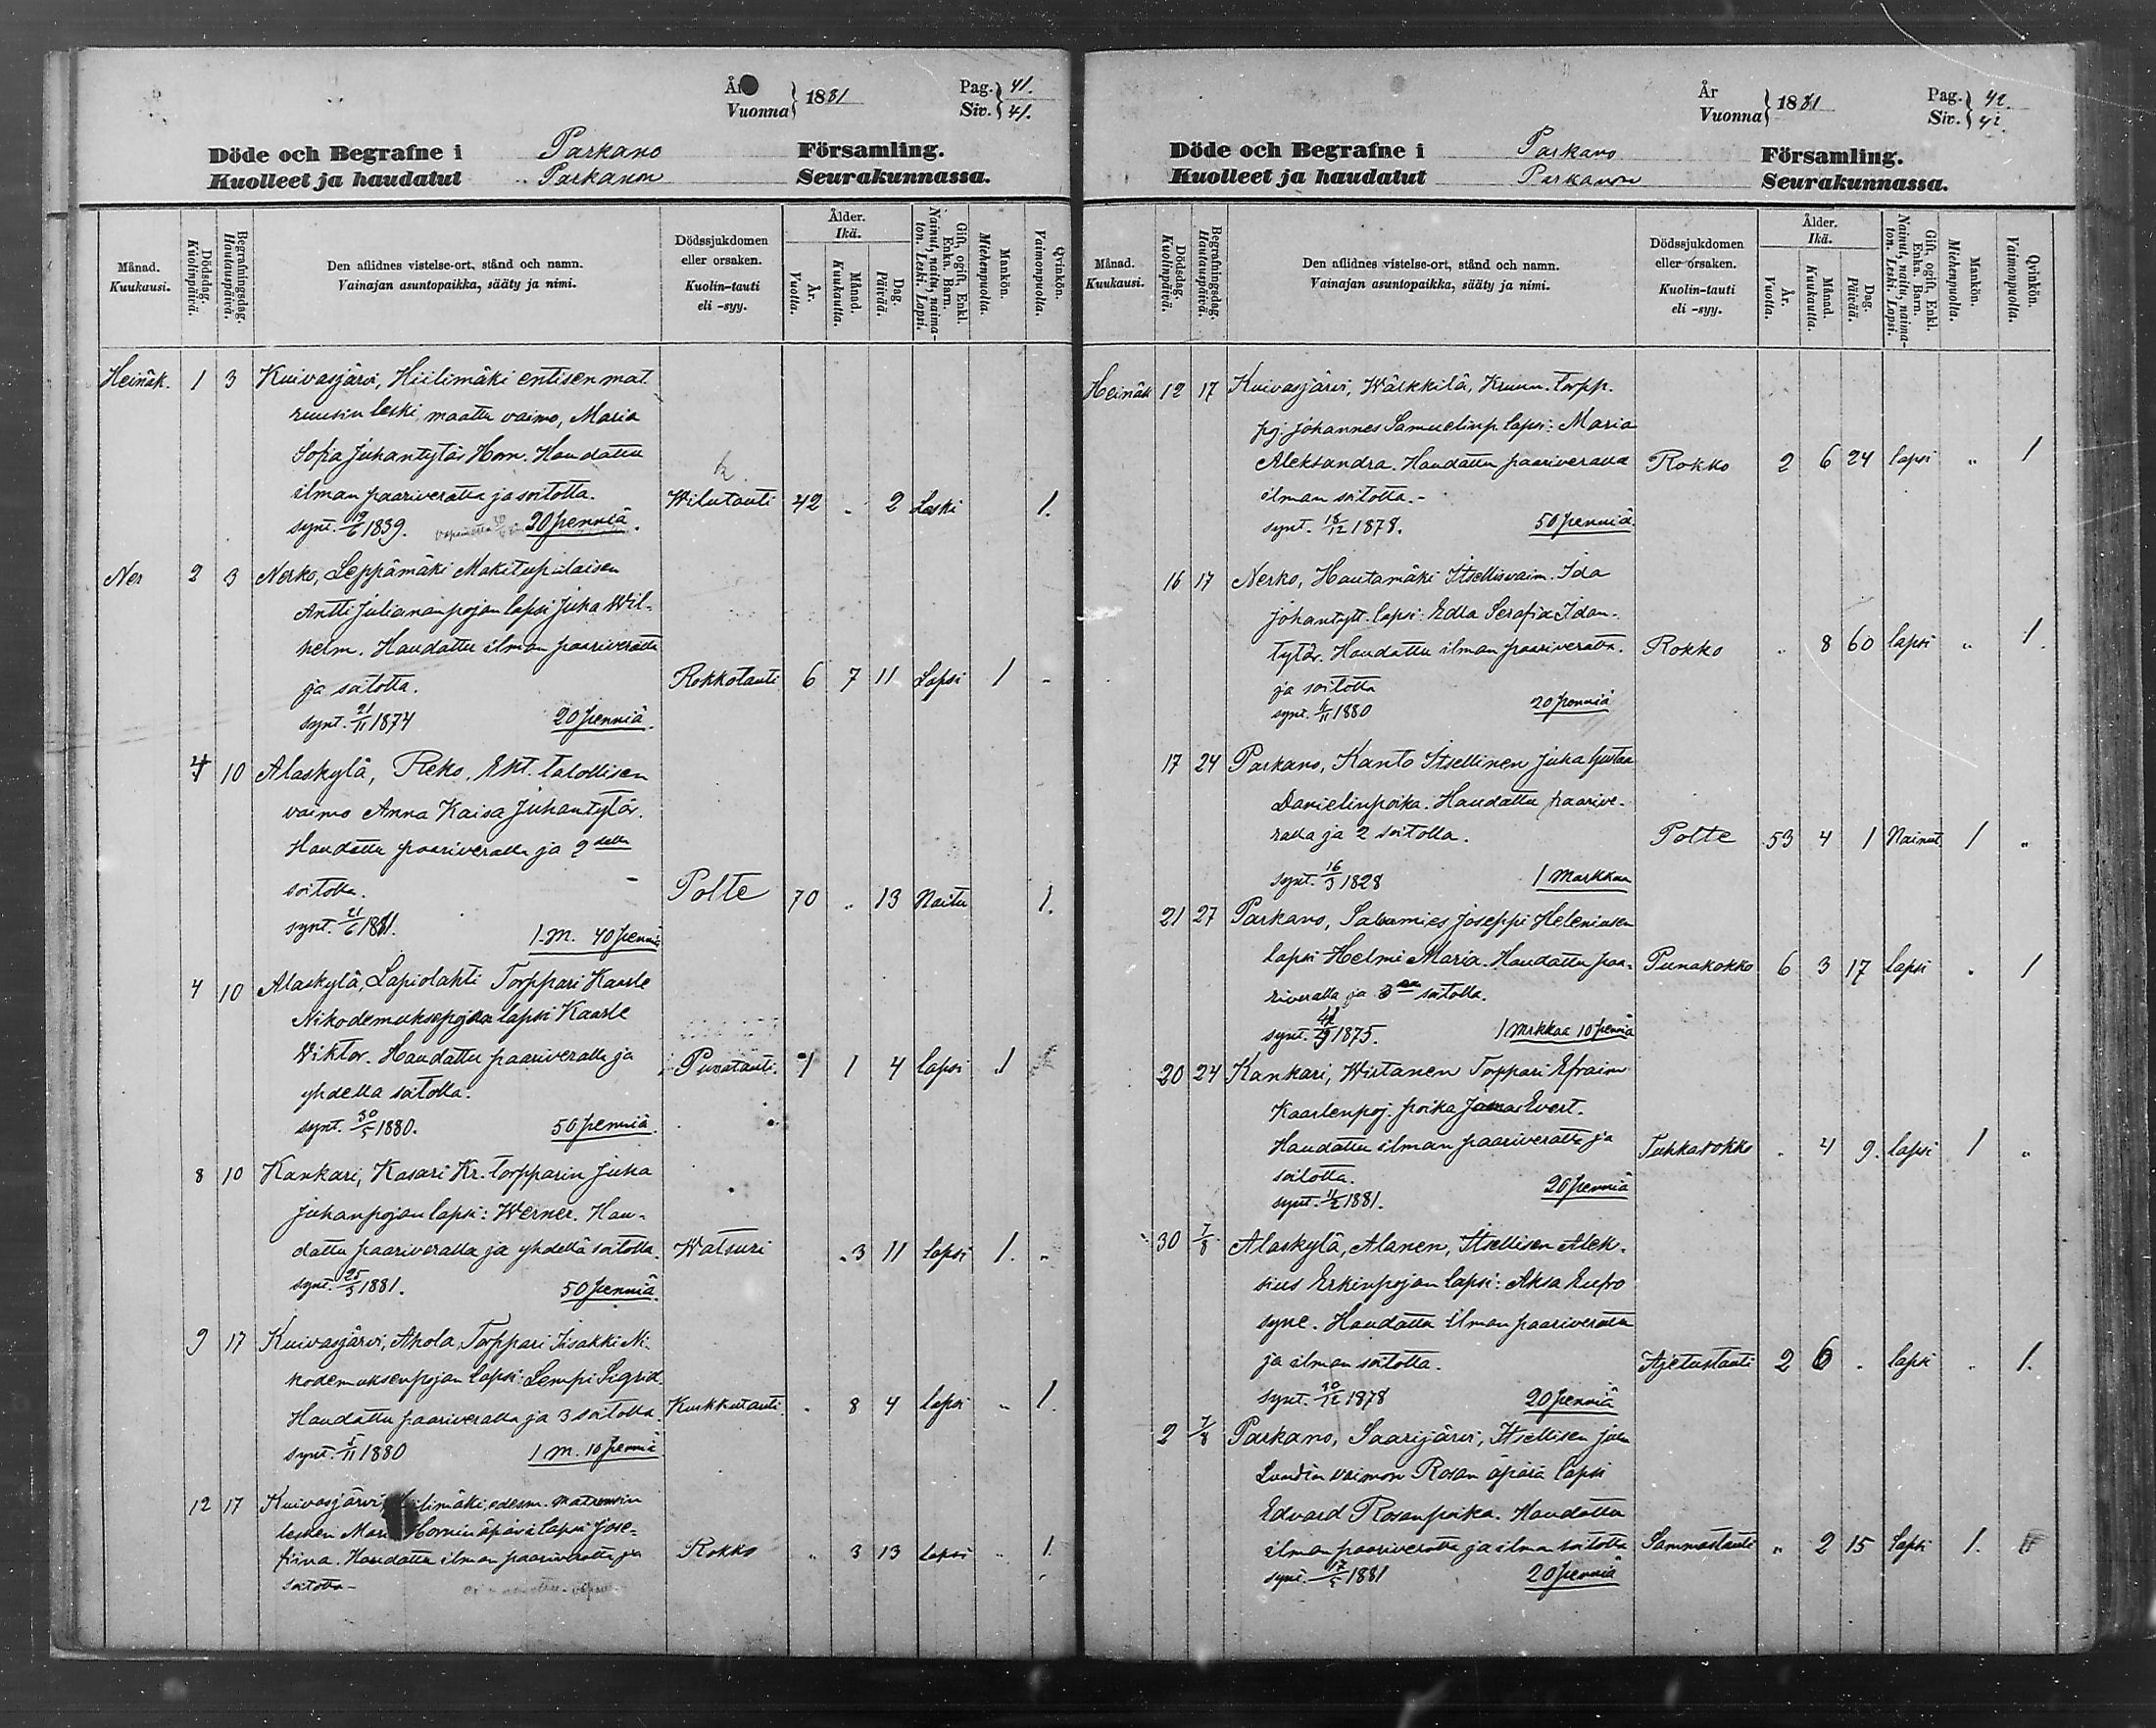 År Vuonna } 1881
Pag. Siv. } 41. 41.
Döde och Begrafne i Parkano Församling.
Kuolleet ja haudatut Parkanon Seurakunnassa.
Månad. Kuukausi.
Dödsdag. Kuolinpäivä.
Begrafningsdag. Hautauspäivä.
Den aflidnes vistelse-ort, stånd och namn. Vainajan asuntopaikka, sääty ja nimi.
Dödssjukdomen eller orsaken. Kuolin-tauti eli -syy.
Ålder. Ikä.
År. Vuotta.
Månad. Kuukautta.
Dag. Päivää.
Gift, ogift, Enkl. Enka. Barn. Nainut, naitu, naimaton. Leski. Lapsi.
Mankön. Miehenpuolta.
Qvinkön. Vaimonpuolta.
Heinäk. 1 3 Kuivasjärvi, Hiilimäki entisen mat
ruusin leski maattu vaimo, Maria
Sofia Juhantytär Horn. Haudattu
ilman paariveratta ja soitotta. Wilutauti 42 „ 2 Leski 1.
synt. 19/6 1839. 20 penniä.
Ner 2 3 Nerko, Leppämäki Mäkitupalaisen
Antti Juliananpojan lapsi Juha Wil-
helm. Haudattu ilman paariveratta
ja soitotta. Rokkotauti 6 7 11 Lapsi 1 -
synt. 21/11 1874 20 penniä.
4 10 Alaskylä, Reko, Ent. talollisen
vaimo Anna Kaisa Juhantytär.
Haudattu paariveralla ja 2 della
soitolla. Polte 70 „ 13 Naitu 1.
synt. 21/6 1811. 1 M. 40 penniä
4 10 Alaskylä, Lapiolahti Torppari Kaarle
Nikodemuksepojan lapsi Kaarle
Viktor. Haudattu paariveralla ja Punatauti. 1 1 4 lapsi 1
yhdellä soitolla.
synt. 30/5 1880. 50 penniä.
8 10 Kankari, Kasari Kr. torpparin Juha
Juhanpojan lapsi: Werner. Hau-
dattu paariveralla ja yhdellä soitolla. Watsuri „ 3 11 lapsi 1. „
synt. 25/3 1881. 50 penniä.
9 17 Kuivasjärvi, Ahola, Torppari Iisakki Ni-
kodemuksenpojan lapsi: Lempi Sigrid.
Haudattu paariveralla ja 3 soitolla. Kurkkutauti. „ 8 4 lapsi „ 1.
synt. 5/11 1880 1 M. 10 penniä
12 17 Kuivasjärvi, edesm. matruusin
lesken Hornin äpärä lapsi Jose-
fiina. Haudattu ilman paariveratta ja Rokko „ 3 13 lapsi „ 1.
soitotta -
År Vuonna } 1881
Pag. Siv. } 42. 42.
Döde och Begrafne i Parkano Församling.
Kuolleet ja haudatut Parkanon Seurakunnassa.
Månad. Kuukausi.
Dödsdag. Kuolinpäivä.
Begrafningsdag. Hautauspäivä.
Den aflidnes vistelse-ort, stånd och namn. Vainajan asuntopaikka, sääty ja nimi.
Dödssjukdomen eller orsaken. Kuolin-tauti eli -syy.
Ålder. Ikä.
År. Vuotta.
Månad. Kuukautta.
Dag. Päivää.
Gift, ogift, Enkl. Enka. Barn. Nainut, naitu, naimaton. Leski. Lapsi.
Mankön. Miehenpuolta.
Qvinkön. Vaimonpuolta.
Heinäk 12 17 Kuivasjärvi, Wälkkilä, Kruun. torpp.
poj. Johannes Samuelinp. lapsi: Maria
Aleksandra. Haudattu paariveralla Rokko 2 6 24 lapsi „ 1
ilman soitotta. -
synt. 18/12 1878. 50 penniä.
16 17 Nerko, Hautamäki Itsellisvaim. Ida
Johantytt. lapsi: Edla Serafia Idan-
tytär. Haudattu ilman paariveratta. Rokko „ 8 60 lapsi „ 1.
ja soitotta
synt. 6/11 1880 20 penniä
17 24 Parkano, Kanto Itsellinen Juha Kustaa
Danielinpoika. Haudattu paarive-
ralla ja 2 soitolla. Polte 53 4 1 Nainut 1 „
synt. 16/3 1828 1 Markkaa
21 27 Parkano, Joseppi Heleniusen
lapsi Helmi Maria. Haudattu paa- Punakokko 6 3 17 lapsi „ 1
riveralla ja 3 en soitolla.
synt. 1875. 1 Markkaa 10 penniä
20 24 Kankari, Wirtanen Torppari Efraim
Kaarlenpoj. poika Evert.
Haudattu ilman paariveratta ja Tuhkarokko „ 4 9. lapsi 1 „
soitotta. 20 penniä
synt. 11/2 1881.
30 7/8 Alaskylä, Alanen, Itsellisen Alek-
sius Erkinpojan lapsi: Aksa Eufro
syne. Haudattu ilman paariveratta
ja ilman soitotta. Ajetustauti 2 6 „ lapsi „ 1.
synt. 30/12 1878 20 penniä
2 7/8 Parkano, Saarijärvi, Itsellisen
Lundin vaimon Rosan äpärä lapsi
Edvard Rosanpoika. Haudattu
ilman paariveratta ja ilman soitotta Sammastauti „ 2 15 lapsi 1.
synt. 17/5 1881 20 penniä